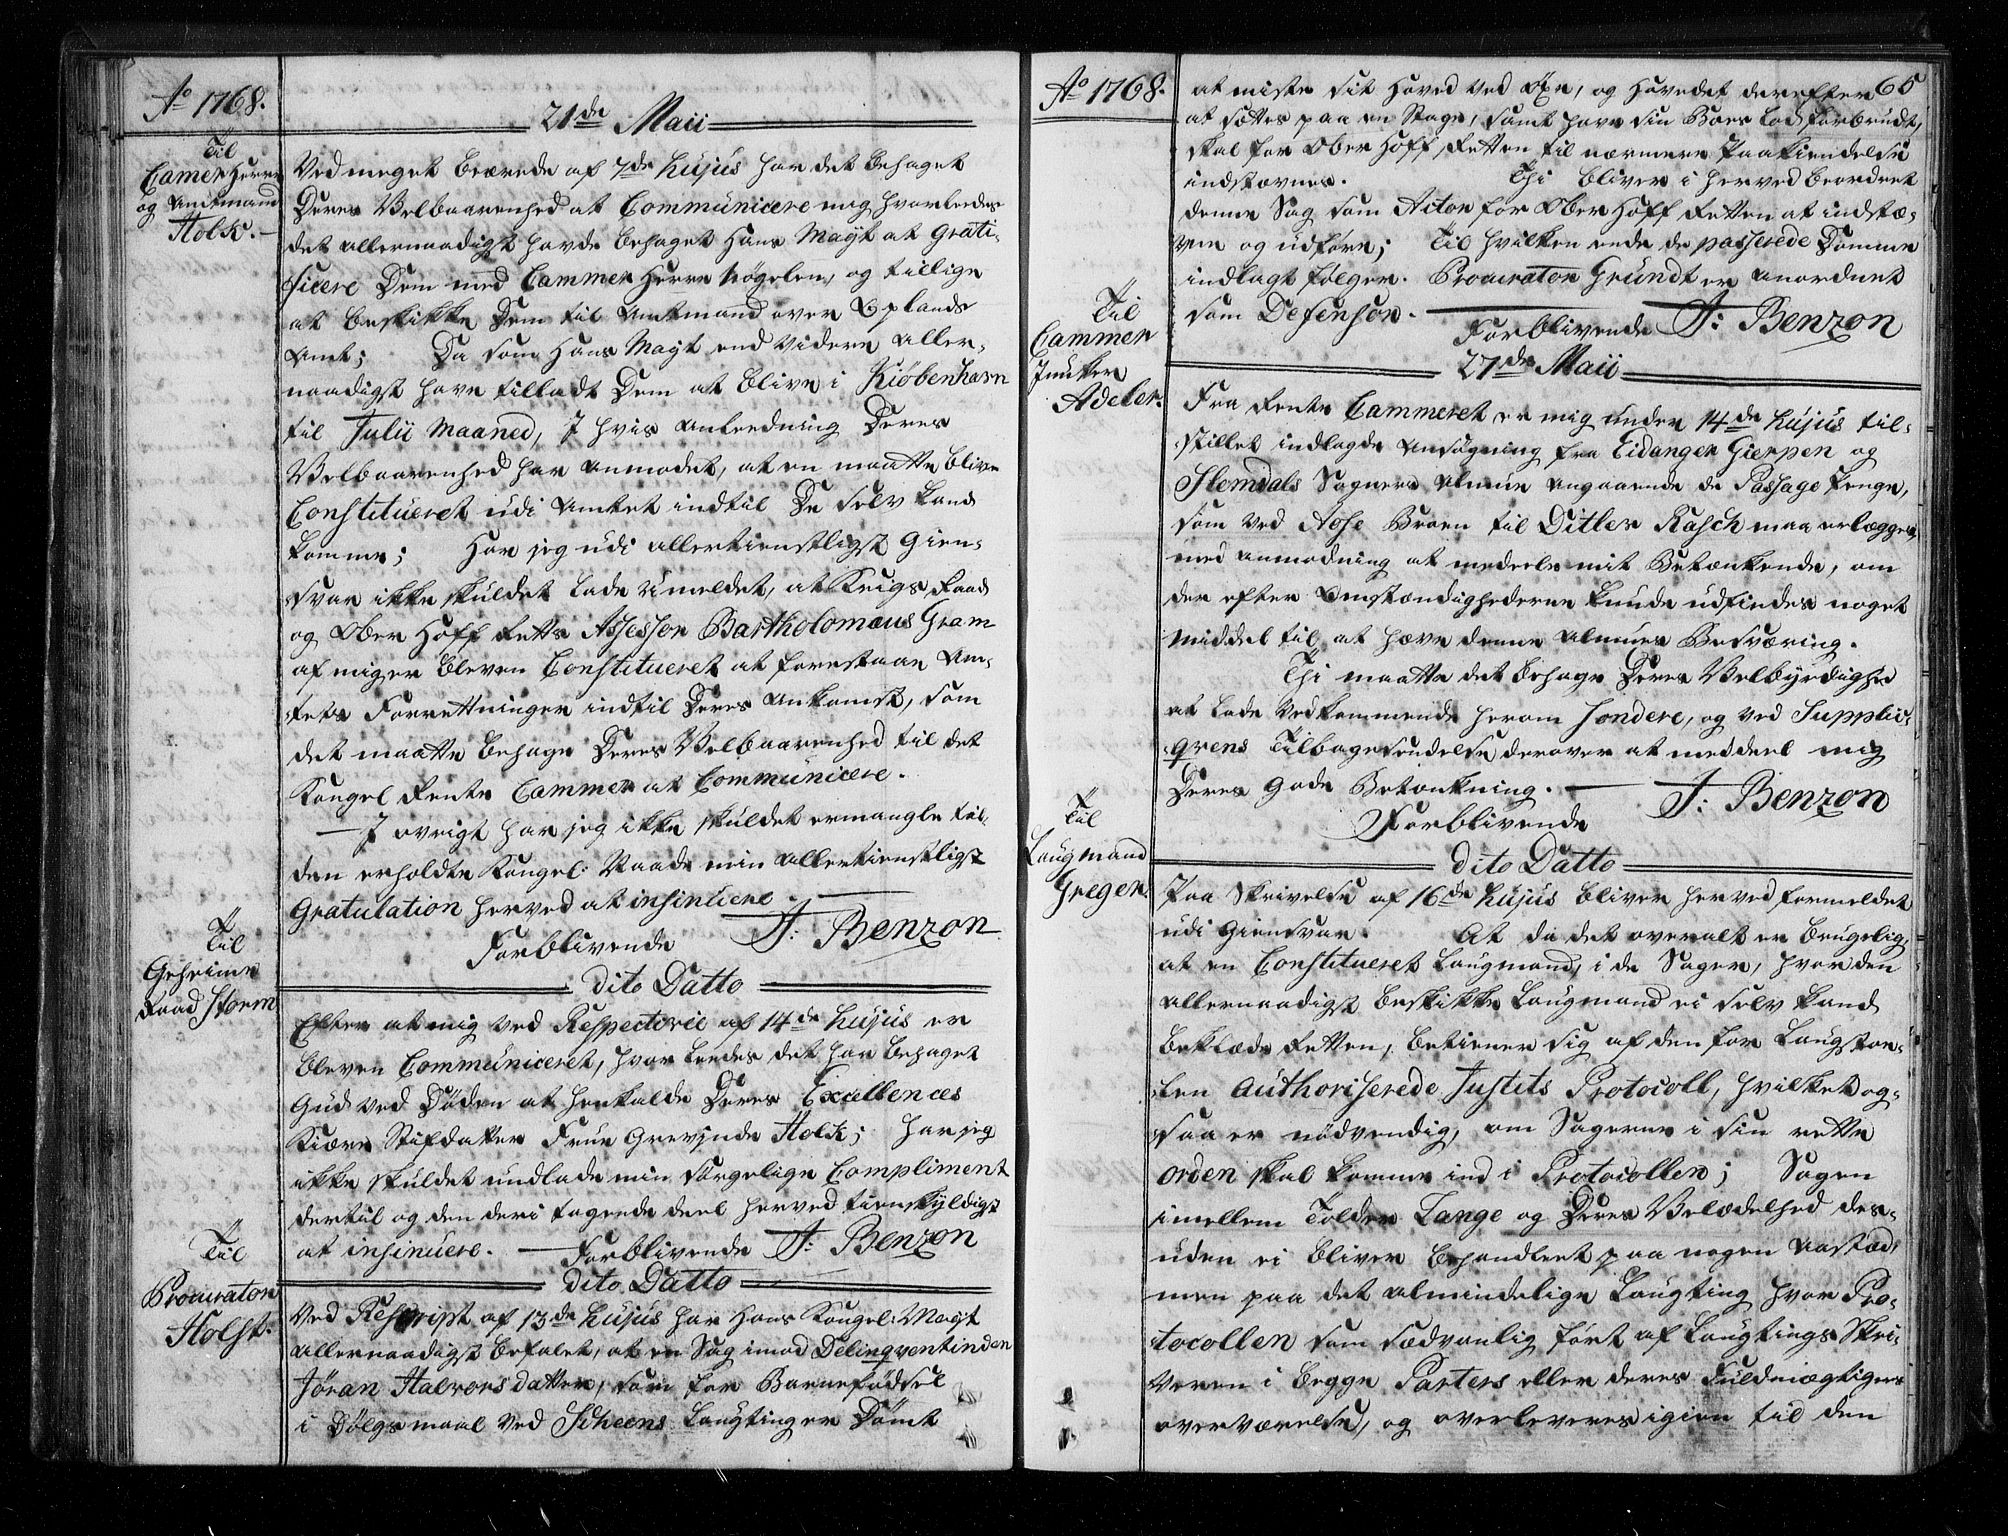 Ao 1768.
21de Maii
Til
Camer Herre
og Amtmand
Holk.
Ved meget beærede af 7de hujus har det behaget
Deres Velbaarenhed at Communicere mig hvorledes
det allernaadigst havde behaget Hans Mayt at grati-
ficere Dem med Cammer Herre Nøgelen, og tillige
at beskikke Dem til Amtmand over Oplands
Amt; Da som Hans Mayt end videre aller-
naadigst have tilladt Dem at blive i Kiøbenhavn
til Julii Maaned, I hvis Anledning Deres
Velbaarenhed har anmodet, at en maatte blive
Constitueret udi Amtet indtil De selv kand
komme; Har jeg udi allertienstligst Gien-
svar ikke skuldet lade umeldet, at Krigs Raad
og Ober Hoff Retts Assessor Bartholomæus Gram
af mig er bleven Constitueret at forestaae Am-
tets Forrettninger indtil Deres Ankomst, som
det maatte behage Deres Velbaarenhed til det
Kongel Rente Cammer at Communicere.
I øvrigt har jeg ikke skuldet ermangle til
den erholdte Kongel: Naade min allertienstligst
Gratulation herved at insinuere.
Forblivende J: Benzon
dito Datto
Til
Geheime
Raad Storm
Efter at mig ved Respective af 14de hujus er
bleven Communiceret, hvorledes det har behaget
Gud ved Døden at henkalde Deres Excellences
Kiære Stifdatter Frue Grevinde Holk; har jeg
ikke skuldet undlade min sørgelige Compliment
dertil og den deri tagende deel herved tienskyldigst
at insinuere. Forblivende J: Benzon
dito Datto
Til
Procurator
Holst.
Ved Rescript af 13de hujus har Hans Kongel: Mayt
allernaadigst befalet, at en Sag imod Delinqventinden
Jøran Halvorsdatter, som for Barnefødsel
i Dølgsmaal ved Scheens Laugting er Dømt
Ao 1768.
65
at miste sit Hoved ved Øxe, og Hovedet derefter
at sættes paa en Stage, samt have sin Boes Lod forbrudt,
skal for Ober Hoff Retten til nærmere Paakiendelse
indstævnes. Thi bliver i herved beordret
denne Sag som Actor for Ober Hoff Retten at indstæ-
vne og udføre; Til hvilken ende de passerede Domme
indlagt følger. Procurator Grundt er anordnet
som Defensor.
Forblivende J: Benzon
27de Maii
Til
Cammer
Junker
Adeler.
Fra Rente Cammeret er mig under 14de hujus til-
stillet indlagde Ansøgning fra Eidanger Gierpen og
Slemdals Sogners Almue angaaende de Passage Penge,
som ved Aose Broen til Ditler Rasch maa erlægges,
med anmodning at meddele mit Betænkende, om
der efter Omstændighederne kunde udfindes noget
Middel til at hæve denne Almues Besværing.
Thi maatte det behage Deres Velbyrdighed
at lade Vedkommende herom sondere, og ved Supplic-
qvens Tilbagesendelse derover at meddeel mig
Deres gode Betænkning.
Forblivende J: Benzon
dito Datto
Til
Laugmand
Greger.
Paa Skrivelse af 16de hujus bliver herved formeldet
udi Giensvar. At da det overalt er brugelig,
at en Constitueret Laugmand, i de Sager, hvor den
allernaadigst beskikke Laugmand ei selv kand
beklæde Retten, betiener sig af den for Laugsto-
len authoriserede Justits Protocoll, hvilket og-
saa er nødvendig, om Sagerne i sin rette
orden skal komme ind i Protocollen; Sagen
imellem Tolder Lange og Deres Velædelhed des-
uden ei bliver behandlet paa nogen Aastæd,
men paa det almindelige Laugting hvor Pro-
tocollen som sædvanlig ført af Laugtings Skri-
veren i begge Parters eller deres Fuldmægtiges
overværelse, og overleveres igien til den